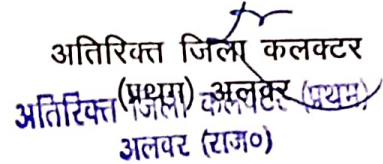 अतिरिक्त जिला कलक्टर
(प्रथम) अलवर
अतिरिक्त जिला कलक्टर (प्रथम)
अलवर (राज०)